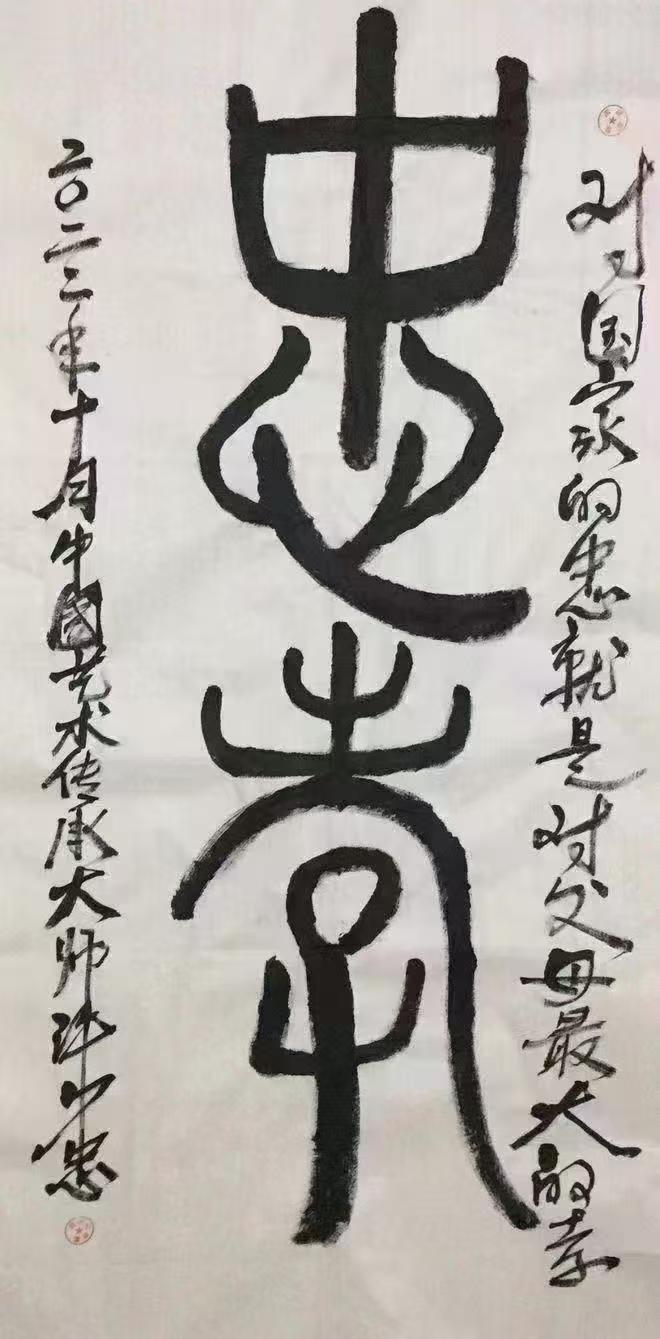 对国家的忠就是对父母最大的孝
忠孝
二〇二二年十月中國艺术传承大师忠